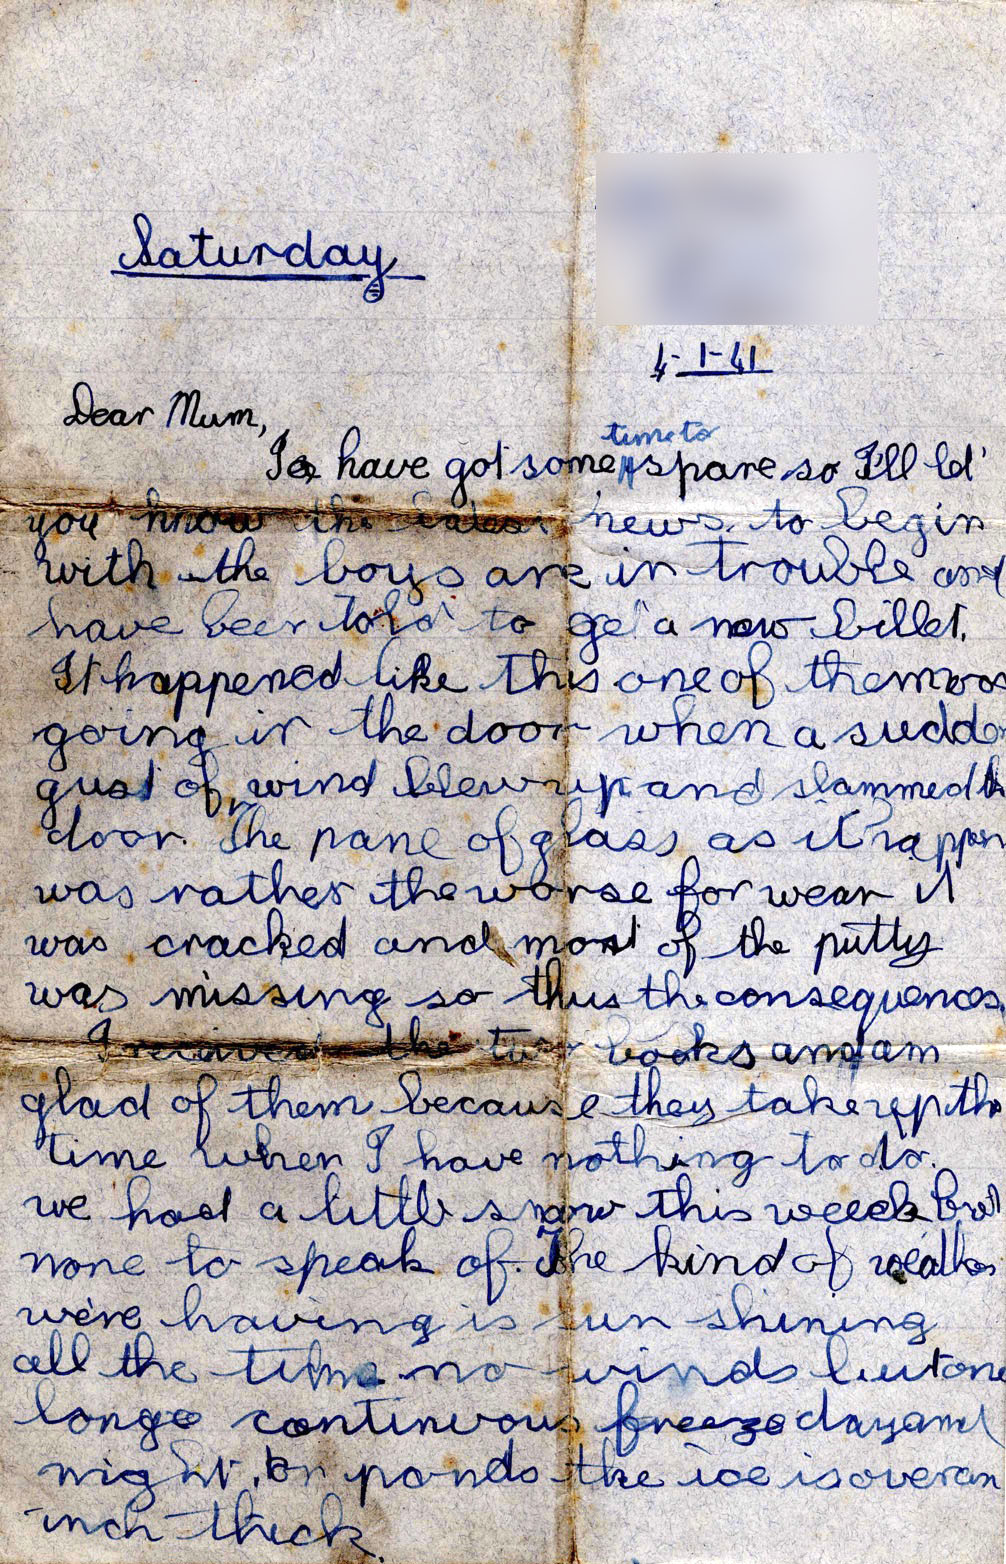 Saturday
4-1-41
Dear Mum,
time to
I have got some spare so I'll let
you know the latest news. to begin
with the boys are in trouble and
have been told to get a new billet.
It happened like this one of them was
going in the door when a sudden
gust of wind blew up and slammed the
door. The pane of glass as it happens
was rather the worse for wear it
was cracked and most of the putty
was missing so thus the consequences
I received the two books and am
glad of them because they take up the
time when I have nothing to do.
we had a little snow this week but
none to speak of. The kind of weather
we're having is sun shining
all the time no winds but one
longe continuous freeze day and
night, on ponds the ice is over an
inch thick.